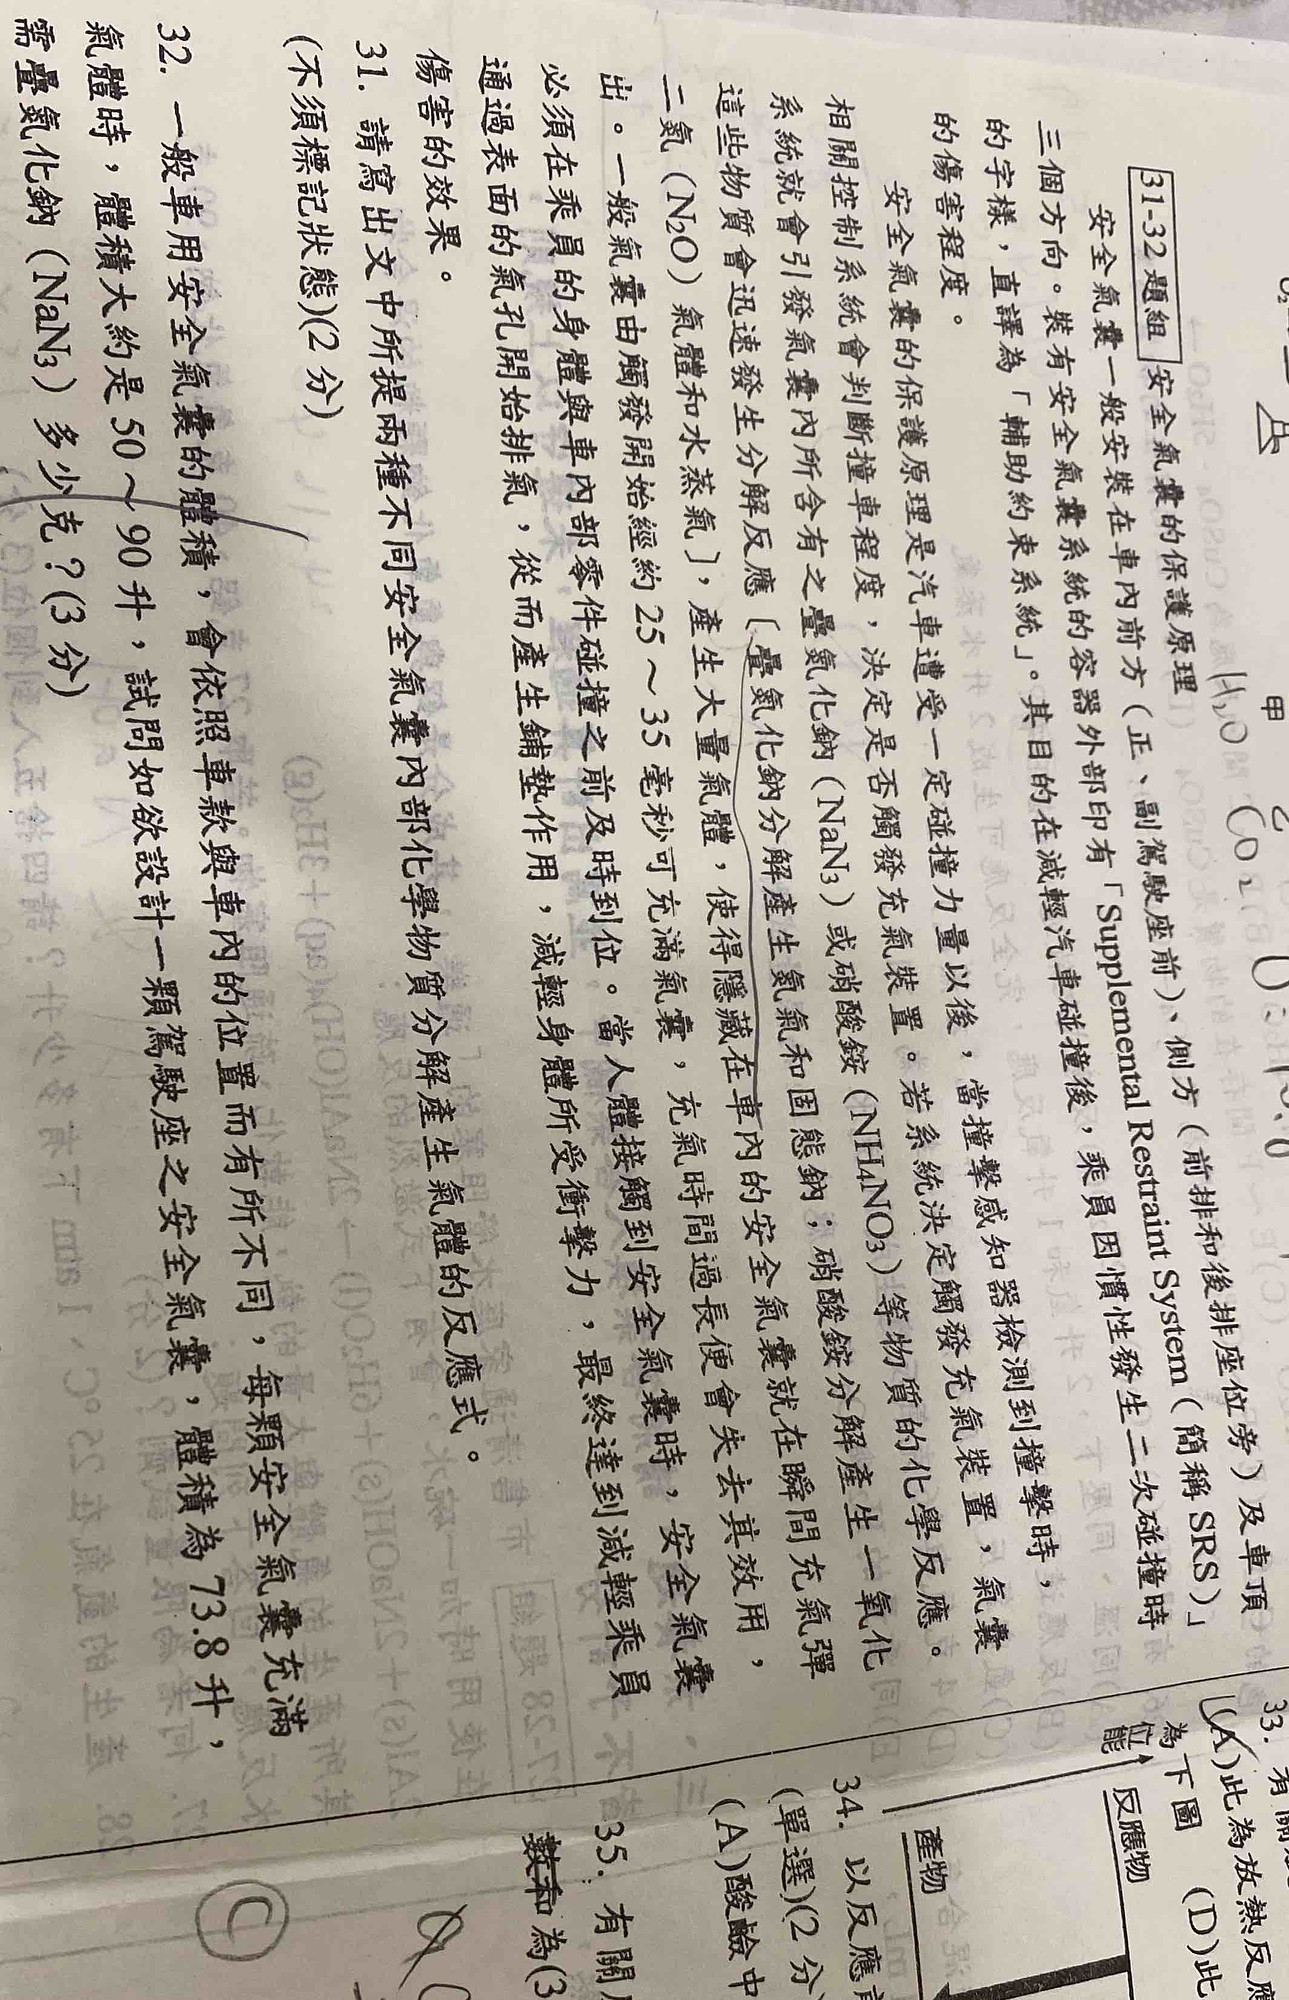 31-32題組 安全氣囊的保護原理
安全氣囊一般安裝在車內前方（正、副駕駛座前）、側方（前排和後排座位旁）及車頂
三個方向。裝有安全氣囊系統的容器外部印有「Supplemental Restraint System（簡稱SRS）」
的字樣，直譯為「輔助約束系統」。其目的在減輕汽車碰撞後，乘員因慣性發生二次碰撞時
的傷害程度。
安全氣囊的保護原理是汽車遭受一定碰撞力量以後，當撞擊感知器檢測到撞擊時，
相關控制系統會判斷撞車程度，決定是否觸發充氣裝置。若系統決定觸發充氣裝置，氣囊
系統就會引發氣囊內所含有之疊氮化鈉（NaN₃）或硝酸銨（NH₄NO₃）等物質的化學反應。
這些物質會迅速發生分解反應〔疊氮化鈉分解產生氮氣和固態鈉；硝酸銨分解產生一氧化
二氮（N₂O）氣體和水蒸氣〕，產生大量氣體，使得隱藏在車內的安全氣囊就在瞬間充氣彈
出。一般氣囊由觸發開始經約25～35毫秒可充滿氣囊，充氣時間過長便會失去其效用，
必須在乘員的身體與車內部零件碰撞之前及時到位。當人體接觸到安全氣囊時，安全氣囊
通過表面的氣孔開始排氣，從而產生鋪墊作用，減輕身體所受衝擊力，最終達到減輕乘員
傷害的效果。
31. 請寫出文中所提兩種不同安全氣囊內部化學物質分解產生氣體的反應式。
(不須標記狀態)(2分)
32. 一般車用安全氣囊的體積，會依照車款與車內的位置而有所不同，每顆安全氣囊充滿
氣體時，體積大約是50～90升，試問如欲設計一顆駕駛座之安全氣囊，體積為73.8升，
需疊氮化鈉（NaN₃）多少克？(3分)
甲
乙
H₂O
CO₂
33. 有關
(A)此為放熱反應
為下圖 (D)此
位能
反應物
產物
34. 以反應
(單選)(2分)
(A)酸鹼中
35. 有關
數和為(3
C